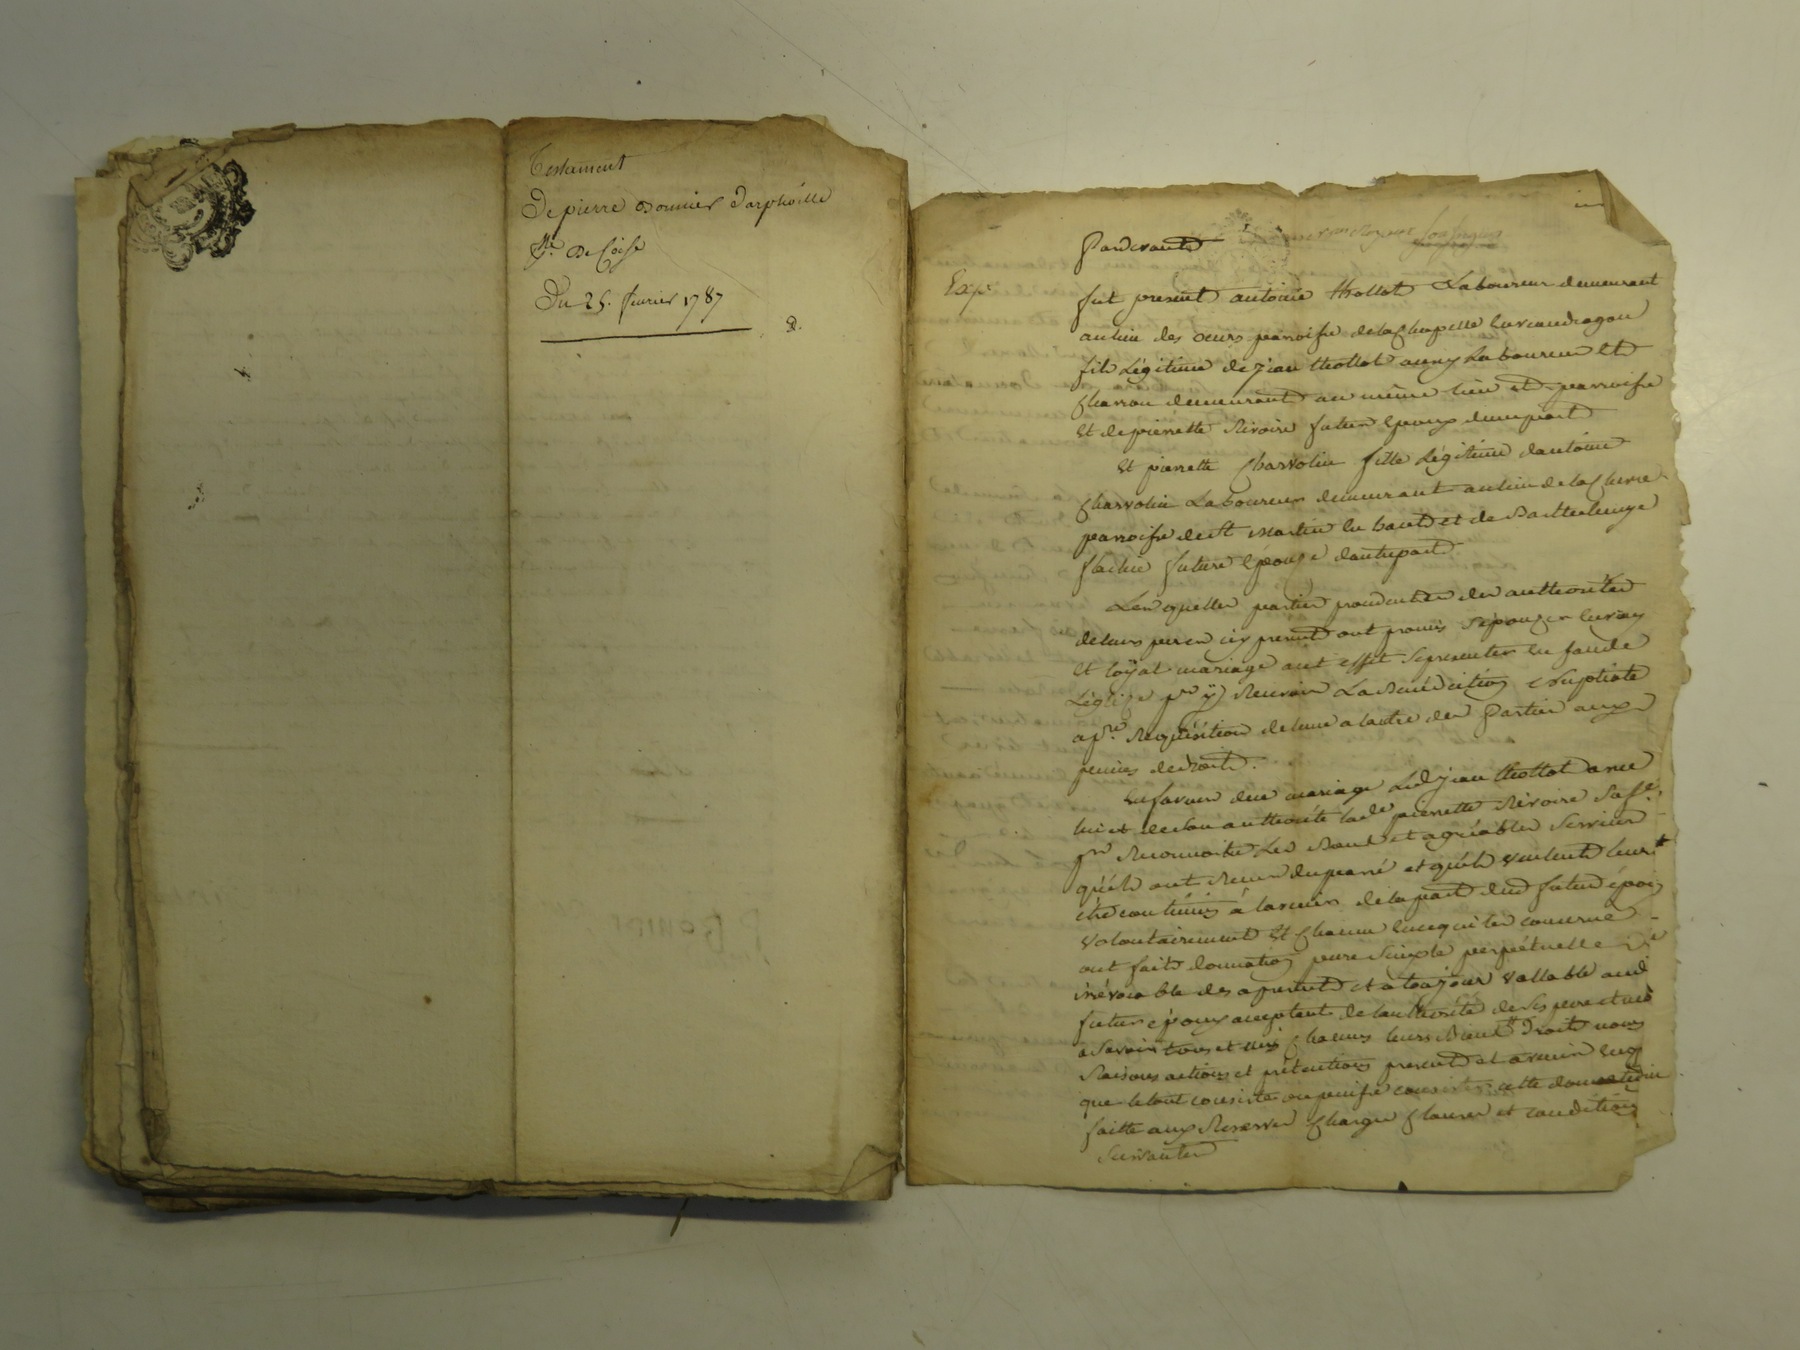 Testament
De pierre Bonnier Darphoille
psse. De Coise
Du 25. fevrier 1787
Pardevant les Con. roy. soussignés
Exp.
fut present antoine thollot Laboureur demeurant
au lieu des parroisse de la Chapelle en vaudragon
fils Légitime de jean thollot aussy Laboureur et
Charron demeurant au même lieu et parroisse
et de pierrette Rivoire futur Epoux dune part
Et pierrette Charvolin fille Légitime dantoine
Charvolin Laboureur demeurant au lieu de la
parroisse de st Martin en haut et de Barthelemye
future Epouse dautre part
Lesquelles parties procedantes des authorités
de leurs peres icy presents ont promis sépouzer en vray
et loÿal mariage a cet effet se presenter en face de
Léglize pr. ÿ Recevoir La Bénédiction Nuptiale
a pre. Réquisition de lune a lautre des Parties aux
peines de droit.
En faveur du mariage Led jean thollot avec
lui et de son authorité lade pierrette Rivoire Sa fe.
pr. Reconnoitre Les Bons et agréables Services
quils ont Recu du passé et quils veulent leurs
être continués à lavenir de la part dud futur époux
volontairement Et Chacun en ce qui les concerne
ont fait donnation pure Simple perpétuelle et
irrévocable des a present et a toujour vallable aud
futur époux acceptant de lauthorité de Ses pere et mere
a Savoir tous et uns Chacuns leurs Biens Droits noms
Raisons actions et prétentions presents et avenir en quoy
que le tout consiste ou puisse consister cette donnation
faitte aux Reserves Charges Clauses et conditions
Suivantes